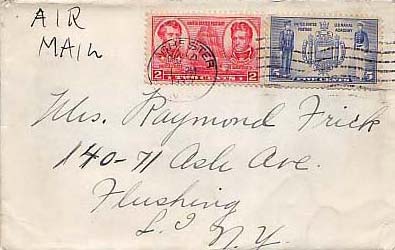 AIR
MAIL
UNITED STATES POSTAGE
2 2
UNITED STATES POSTAGE
U.S. NAVAL ACADEMY
5 5
Mrs. Raymond Frick
140-71 Ash Ave.
Flushing
L.I.
N.Y.